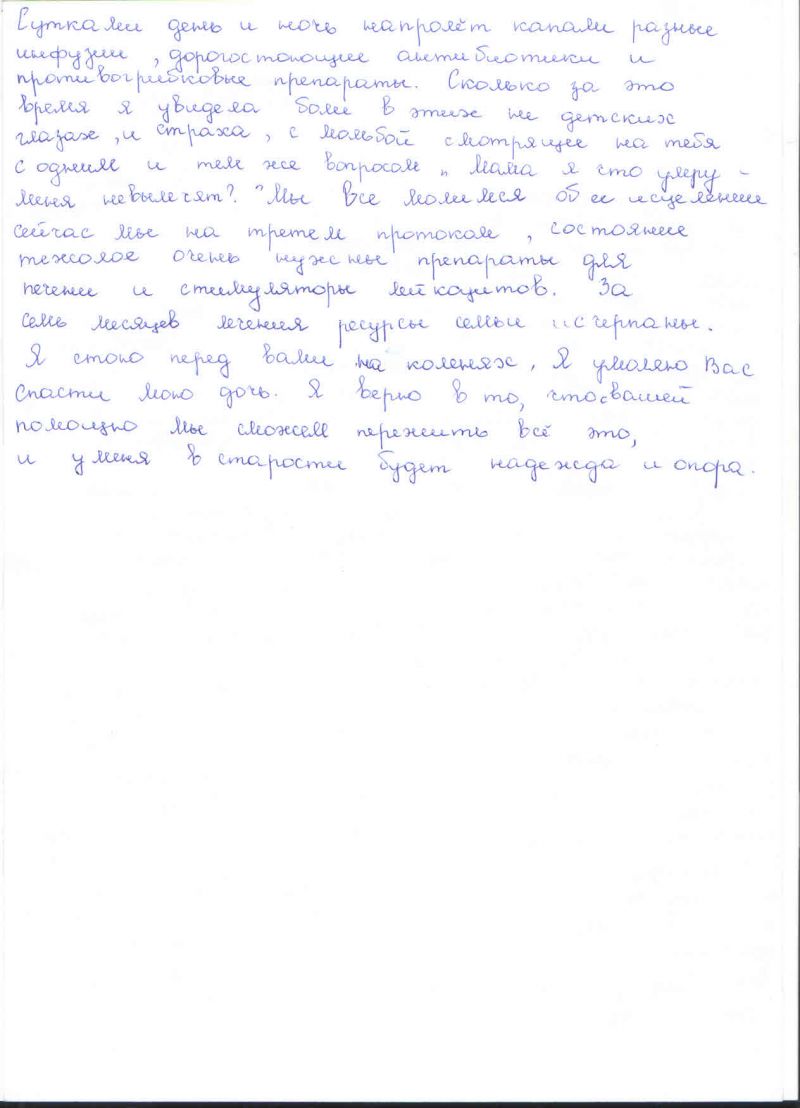 Сутками день и ночь напролёт капали разные
инфузии, дорогостоющие антибиотики и
противогрибковые препараты. Сколько за это
время я увидела боли в этих не детских
глазах, и страха, с мольбой смотрящее на тебя
с одним и тем же вопросом „ Мама я что умру -
меня невылечят? "Мы все молимся об ее исцелении
сейчас мы на третем протоколе, состояние
тежолое очень нужны препараты для
печени и стимуляторы лейкоцитов. За
семь месяцев лечения ресурсы семьи исчерпаны.
Я стою перед вами на коленях, Я умоляю Вас
спасти мою дочь. Я верю в то, что с вашей
помощью мы сможем пережить всё это,
и у меня в старости будет надежда и опора.